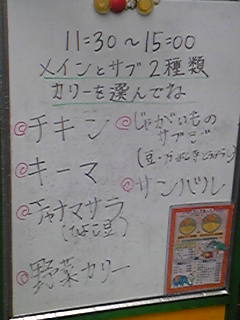 11=30～15=00
メインとサブ2種類
カリーを選んでね
◎チキン
◎キーマ
◎チャナマサラ
(ひよこ豆)
◎野菜カリー
◎じゃがいもの
サブジ
◎サンバル